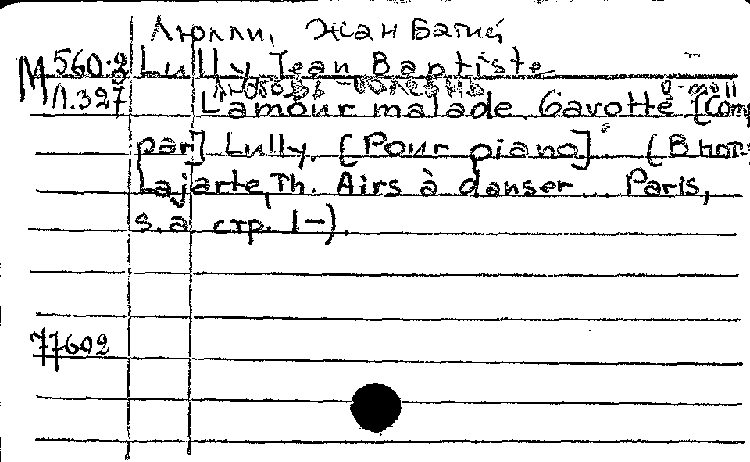 Люлли, Жан Батис
М 560:8 Lully Jean Baptiste
Любовь-болезнь
Л.327 L'amour malade Gavotte d-moll [Comp
par] Lully. [Pour piano] (В нот
Lajarte, Th. Airs à danser Paris,
s.a стр. 1–).
77602